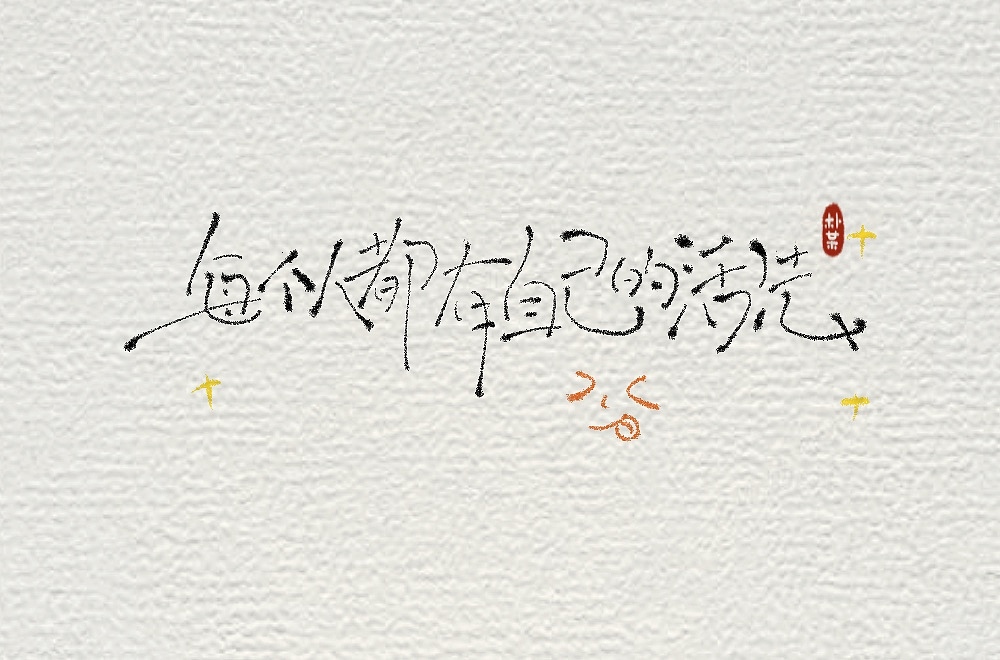 每个人都有自己的活法
朴某